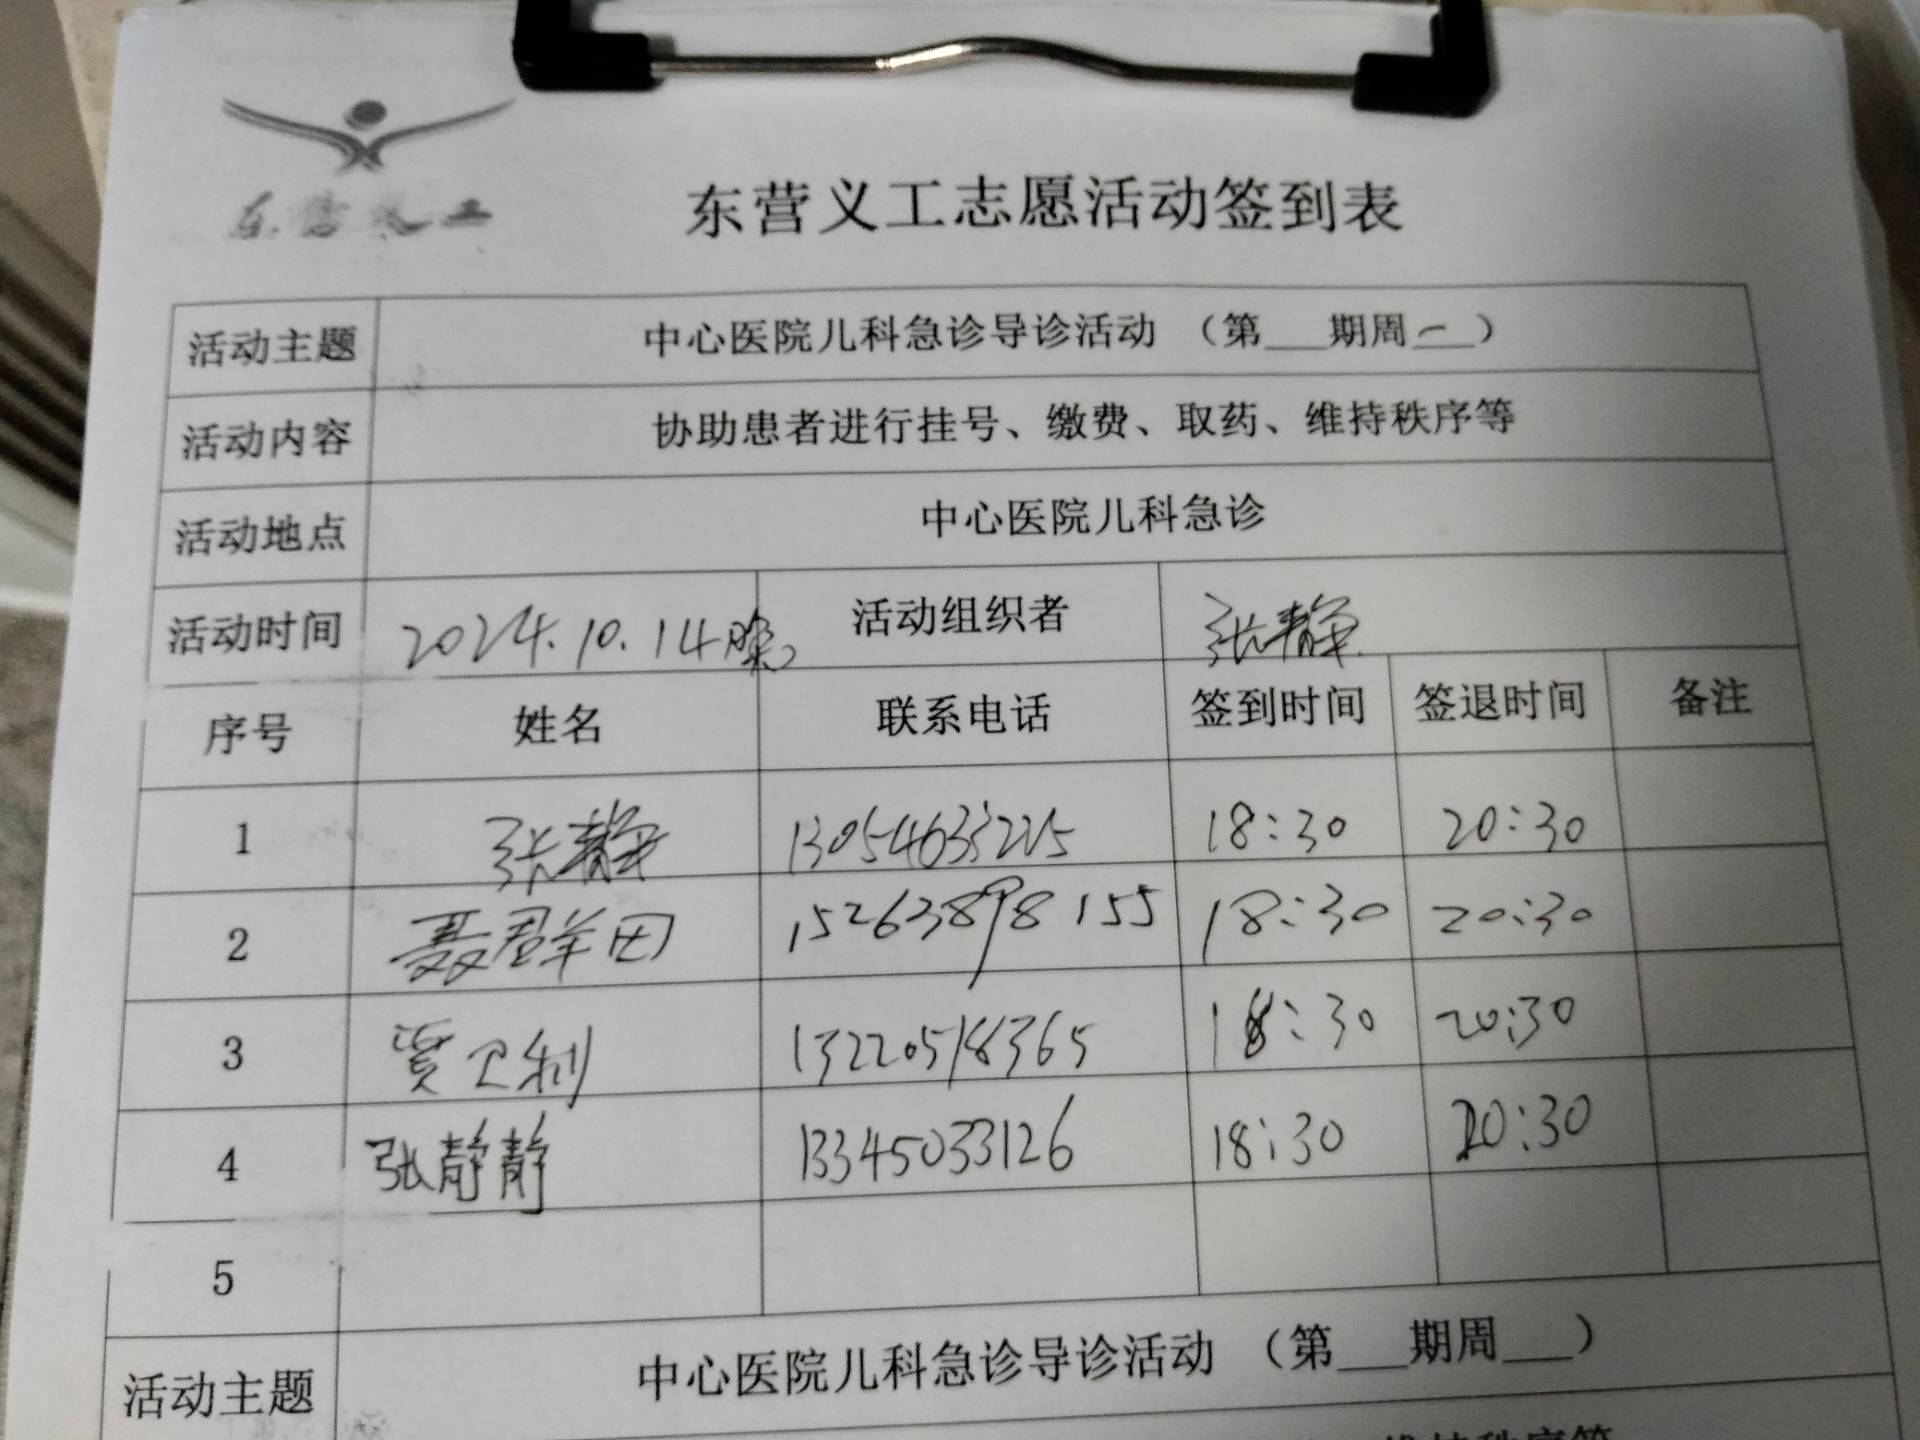 东营义工
东营义工志愿活动签到表
活动主题 中心医院儿科急诊导诊活动 （第___期周一）
活动内容 协助患者进行挂号、缴费、取药、维持秩序等
活动地点 中心医院儿科急诊
活动时间 2024.10.14晚 活动组织者 张静
序号 姓名 联系电话 签到时间 签退时间 备注
1 张静 13054633225 18:30 20:30
2 15263898155 18:30 20:30
3 贾卫利 13220518365 18:30 20:30
4 张静静 13345033126 18:30 20:30
5
活动主题 中心医院儿科急诊导诊活动 （第___期周___）
维持秩序等